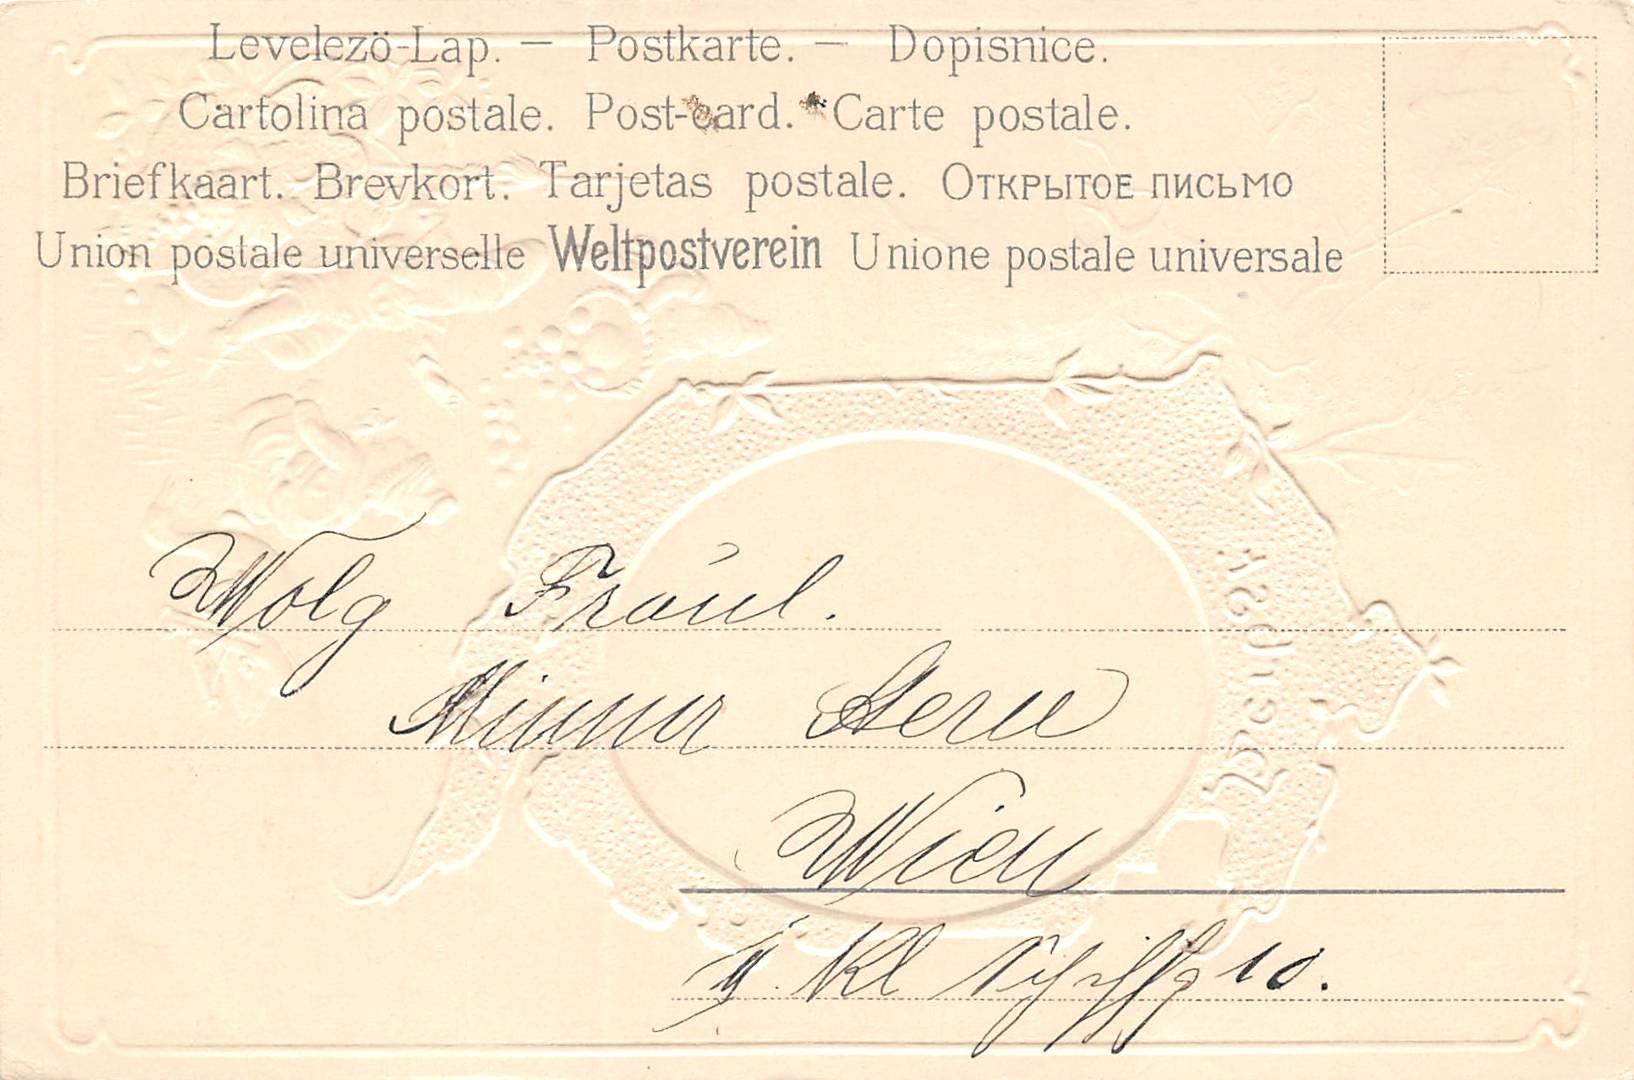 Levelező-Lap. — Postkarte. — Dopisnice.
Cartolina postale. Post-card. Carte postale.
Briefkaart. Brevkort. Tarjetas postale. Открытое письмо
Union postale universelle Weltpostverein Unione postale universale
Wolg Fräul.
Minna Stern
Wien
Kl 10.